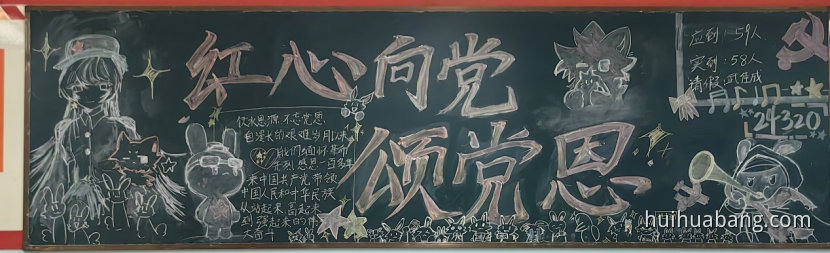 红心向党
颂党恩
饮水思源 不忘党恩
自漫长的艰难岁月以来
我们缅怀革命
先烈 感恩一百多年
来中国共产党带领
中国人民和中华民族
从站起来 富起来
到强起来的伟
大奋斗
应到：59人
实到：58人
请假：
24320
huihuabang.com